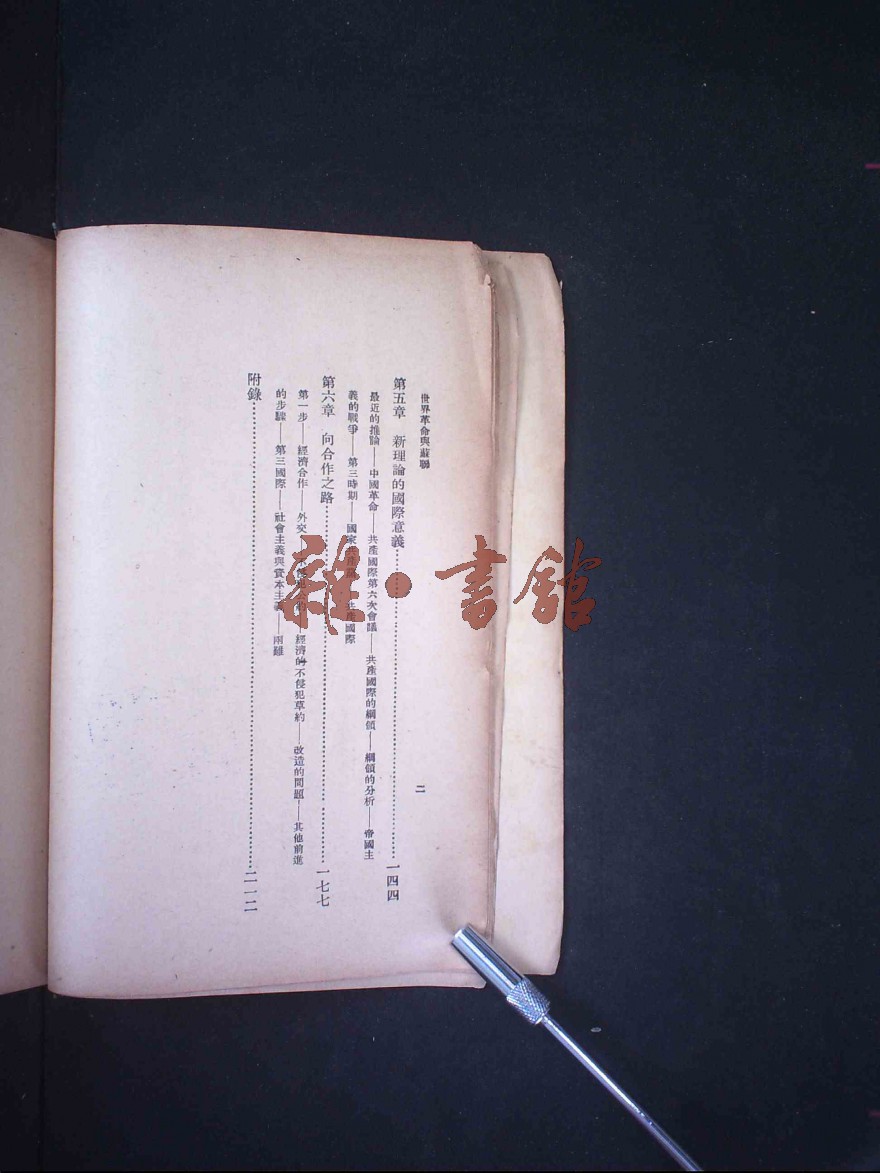 世界革命與蘇聯
二
第五章　新理論的國際意義…………一四四
最近的推論——中國革命——共產國際第六次會議——共產國際的綱領——綱領的分析——帝國主
義的戰爭——第三時期——國家共產黨　共產國際
第六章　向合作之路…………一七七
第一步——經濟合作——外交　經濟的不侵犯草約——改造的問題——其他前進
的步驟——第三國際——社會主義與資本主義——兩難
附錄…………二一二
雜·書館